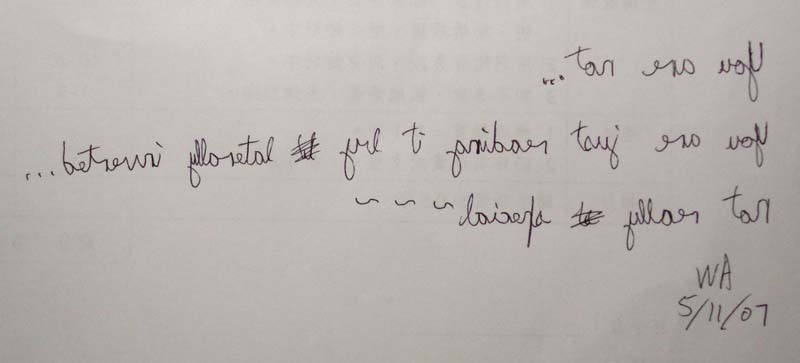 You are not...
You are just reading it laterally inverted...
Not really special ~ ~ ~
WA
5/11/07